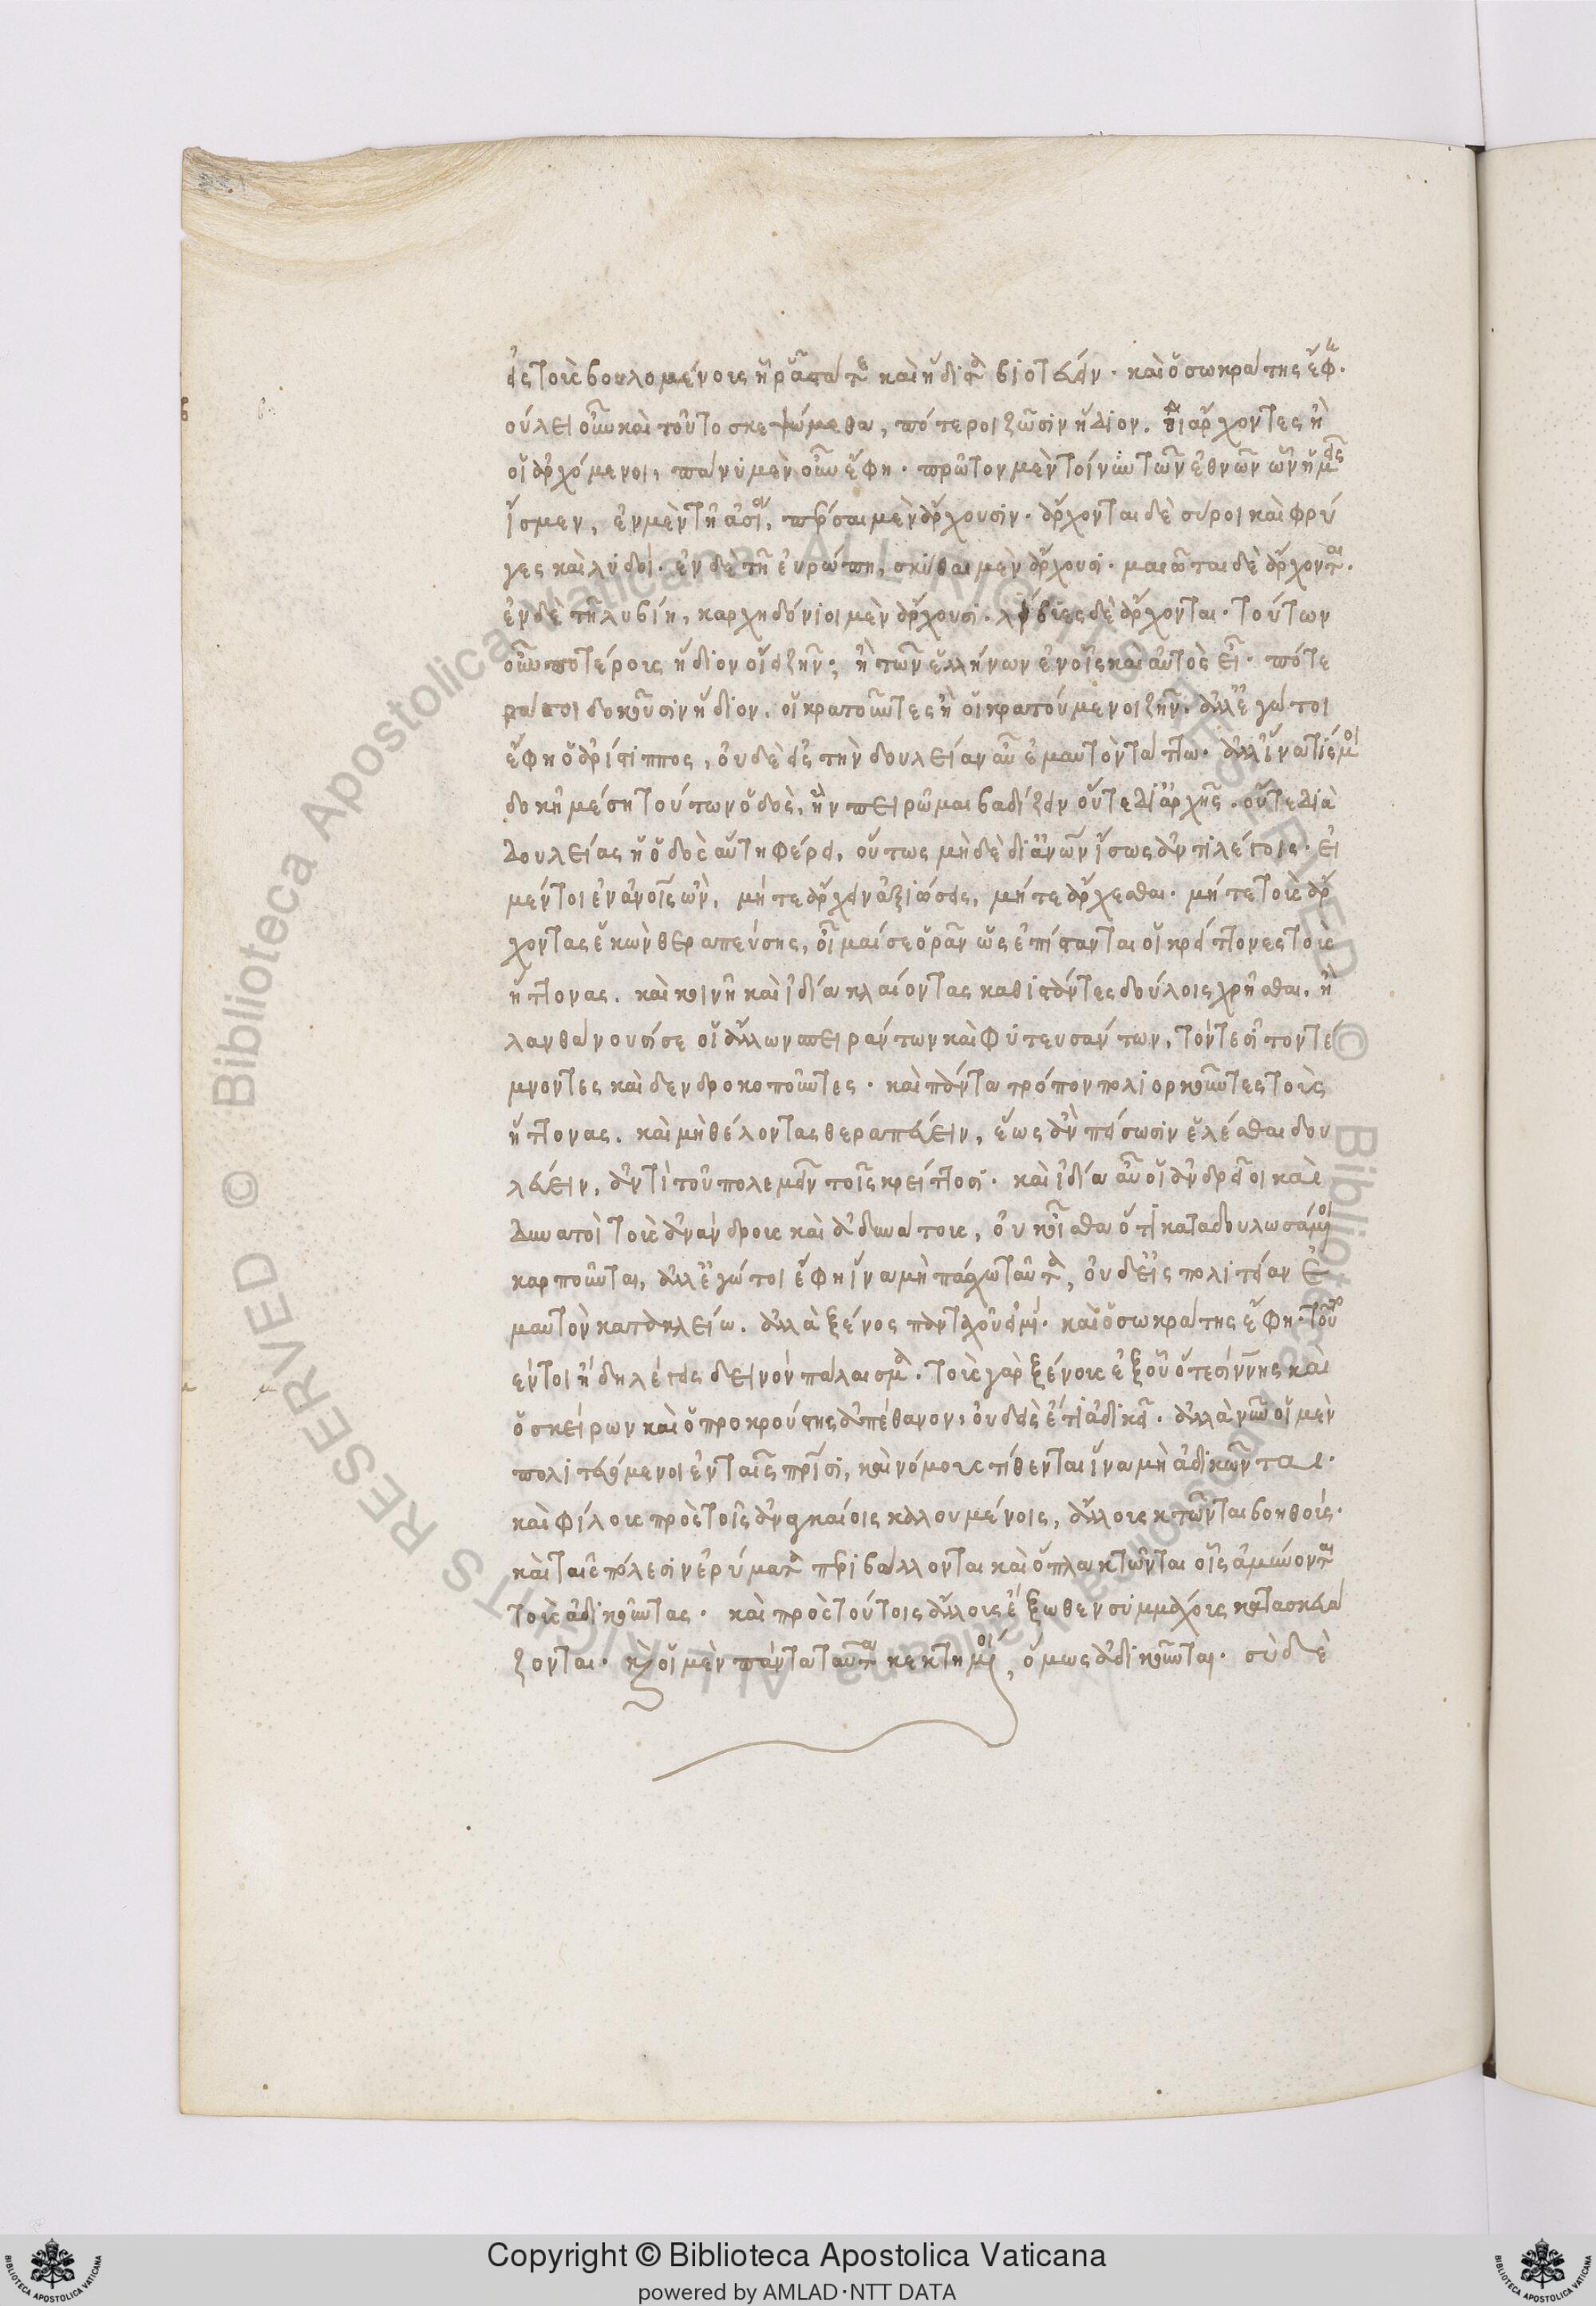 εἰς τοὺς βουλομένους ᾗ ῥᾷστά τε καὶ ἥδιστα βιοτεύειν. καὶ ὁ σωκράτης ἔφη.
ούλει οὖν καὶ τοῦτο σκεψώμεθα, πότεροι ζῶσιν ἥδιον. οἱ ἄρχοντες ἢ
οἱ ἀρχόμενοι, πάνυ μὲν οὖν ἔφη. πρῶτον μὲν τοίνυν τῶν ἐθνῶν ὧν ἡμεῖς
ἴσμεν, ἐν μὲν τῇ ἀσίᾳ, πέρσαι μὲν ἄρχουσιν. ἄρχονται δὲ σύροι καὶ φρύ
γες καὶ λυδοί. ἐν δὲ τῇ εὐρώπῃ, σκύθαι μὲν ἄρχουσι. μαιῶται δὲ ἄρχονται.
ἐν δὲ τῇ λυβίῃ, καρχηδόνιοι μὲν ἄρχουσι. λίβυες δὲ ἄρχονται. τούτων
οὖν ποτέρους ἥδιον οἴει ζῆν; ἢ τῶν ἑλλήνων ἐν οἷς καὶ αὐτὸς εἶ. πότε
ρά σοι δοκοῦσιν ἥδιον. οἱ κρατοῦντες ἢ οἱ κρατούμενοι ζῆν. ἀλλ' ἐγώ τοι
ἔφη ὁ ἀρίστιππος, οὐδὲ εἰς τὴν δουλείαν αὖ ἐμαυτὸν τάττω. ἀλλ' εἶναι τίς μοι
δοκεῖ μέση τούτων ὁδὸς, ἣν πειρῶμαι βαδίζειν οὔτε δι' ἀρχῆς. οὔτε διὰ
δουλείας ἡ ὁδὸς αὕτη φέρει, οὕτως μηδὲ δι' ἀνων ἴσως ἄν τι λέγοις. εἰ
μέντοι ἐν ἀνοις ὢν, μήτε ἄρχειν ἀξιώσεις, μήτε ἄρχεσθαι. μήτε τοὺς ἄρ
χοντας ἑκὼν θεραπεύσης, οἶμαί σε ὁρᾶν ὡς ἐπίστανται οἱ κρείττονες τοὺς
ἥττονας. καὶ κοινῇ καὶ ἰδίᾳ κλαίοντας καθιστάντες δούλοις χρῆσθαι, ἢ
λανθάνουσί σε οἱ ἄλλων σπειράντων καὶ φυτευσάντων, τόν τε σῖτον τέ
μνοντες καὶ δενδροκοποῦντες. καὶ πάντα τρόπον πολιορκοῦντες τοὺς
ἥττονας. καὶ μὴ θέλοντας θεραπεύειν, ἕως ἂν πείσωσιν ἑλέσθαι δου
λεύειν, ἀντὶ τοῦ πολεμεῖν τοῖς κρείττοσι. καὶ ἰδίᾳ αὖ οἱ ἀνδρεῖοι καὶ
δυνατοὶ τοὺς ἀνάνδρους καὶ ἀδυνάτους, οὐκ οἶσθα ὅτι καταδουλωσάμενοι
καρποῦνται, ἀλλ' ἐγώ τοι ἔφη ἵνα μὴ πάσχω ταῦτα, οὐδ' εἰς πολιτείαν ἐ
μαυτὸν κατακλείω. ἀλλὰ ξένος πανταχοῦ εἰμί. καὶ ὁ σωκράτης ἔφη. τοῦτο
έντοι ἤδη λέγεις δεινὸν πάλαισμα. τοὺς γὰρ ξένους ἐξ οὗ ὅ τε σίννης καὶ
ὁ σκείρων καὶ ὁ προκρούστης ἀπέθανον, οὐδεὶς ἔτι ἀδικεῖ. ἀλλὰ νῦν οἱ μὲν
πολιτευόμενοι ἐν ταῖς πρίσι, καὶ νόμους τίθενται ἵνα μὴ ἀδικῶνται.
καὶ φίλους πρὸς τοῖς ἀναγκαίοις καλουμένοις, ἄλλους κτῶνται βοηθούς.
καὶ ταῖς πόλεσιν ἐρύματα περιβάλλονται καὶ ὅπλα κτῶνται οἷς ἀμύνονται
τοὺς ἀδικοῦντας. καὶ πρὸς τούτοις ἄλλους ἔξωθεν συμμάχους κατασκευά
ζονται. καὶ οἱ μὲν πάντα ταῦτα κεκτημένοι, ὅμως ἀδικοῦνται. σὺ δὲ
Copyright © Biblioteca Apostolica Vaticana
powered by AMLAD·NTT DATA